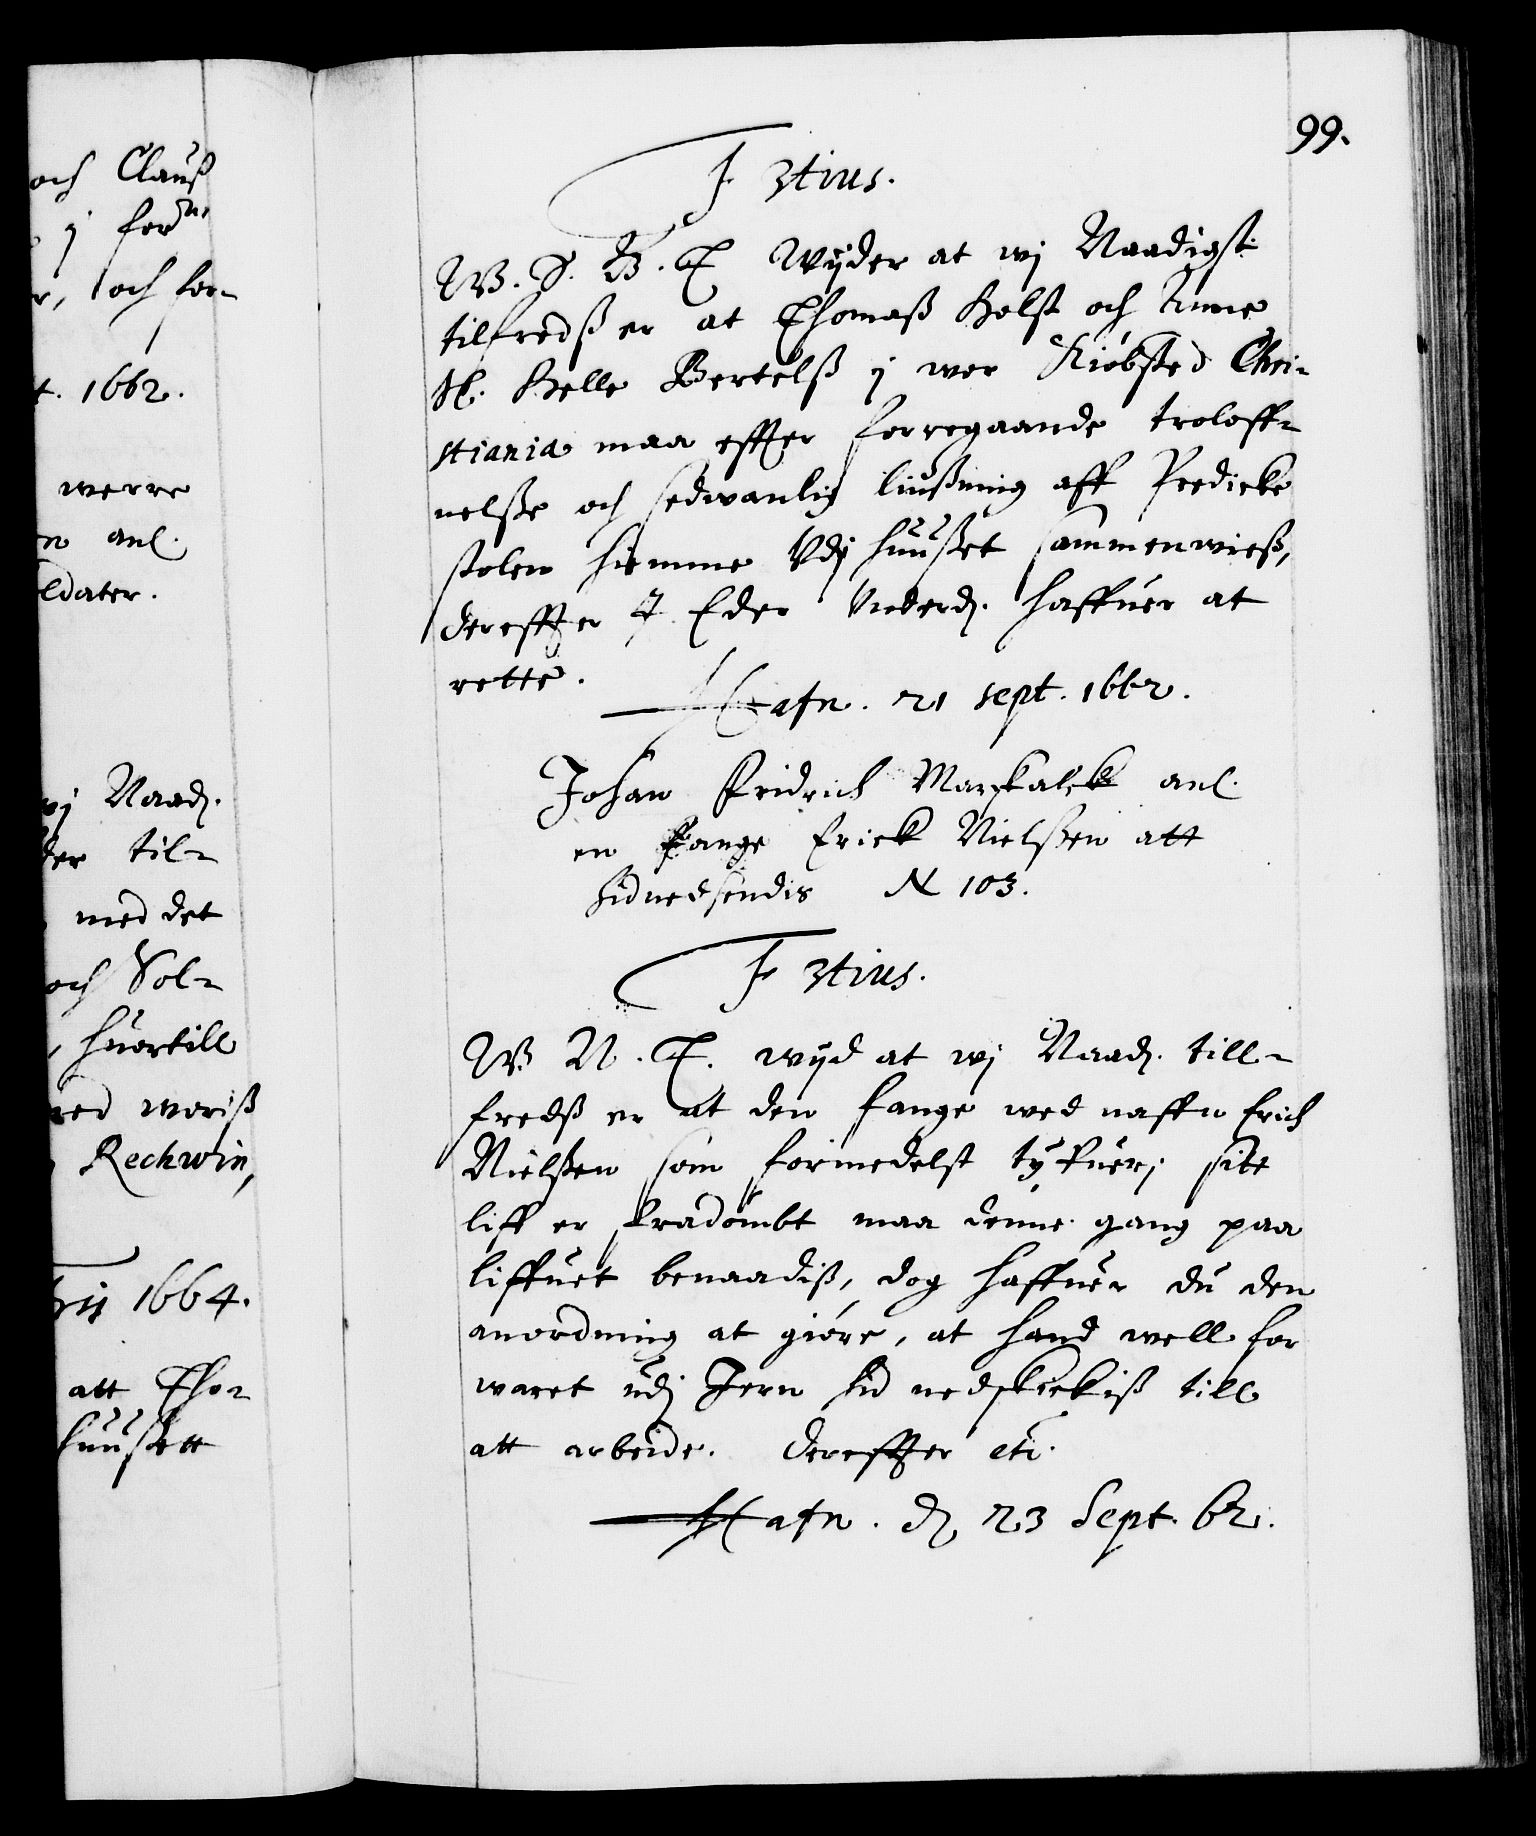 och Clauß
j for^ne
r, och for-
t. 1662.
werre
n anl.
ldater.
wj Naad.
der til-
med det
och Sol-
, huortill
red woriß
Rechwin,
brij 1664.
att Tho-
huußett
99.
F 3tius.
W. S. B. T Wijder at wj Naadigst
tilfredß er at Thomaß Holst och Anne
Sl. Helle Bertelß j wor Kiöbsted Chri-
stiania maa effter forregaaende troloff-
nelße och sedvanlig liußning aff Predicke
stolen hiemme Udj huußet sammenvieß,
dereffter I Eder Underd. haffuer at
rette.
Hafn. 21 sept. 1662.
Johan Fridrich Marskalck anl.
en Fange Erick Nielßen att
hidnedsendis N 103.
F 3tius.
W. N. T. wijd at wj Naad. till-
fredß er at den fange wed naffn Erich
Nielßen som formedelst tyfuerj sitt
liff er fradömbt maa denne gang paa
liffuet benaadiß, dog haffuer du den
anordning at giöre, at hand well for
waret udj Jern hid nedskickiß till
att arbeide. dereffter etc.
Hafn. d. 23 Sept. 62.